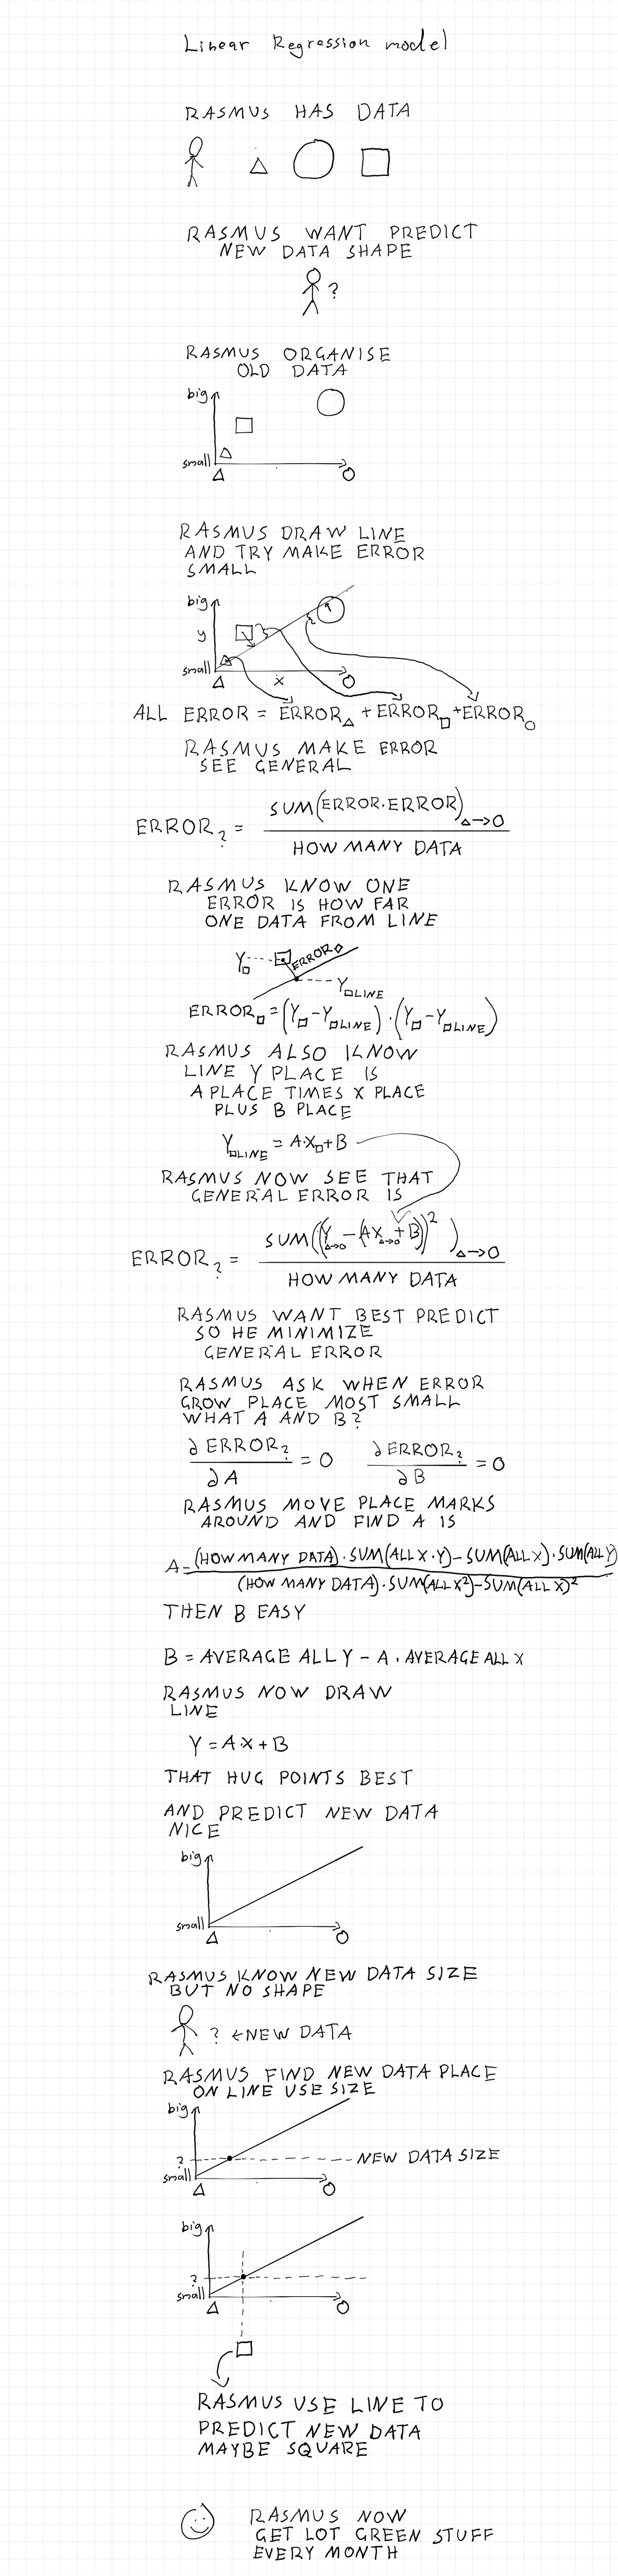 Linear Regression model
RASMUS HAS DATA
RASMUS WANT PREDICT
NEW DATA SHAPE
?
RASMUS ORGANISE
OLD DATA
big
small
RASMUS DRAW LINE
AND TRY MAKE ERROR
SMALL
big
y
small
x
ALL ERROR = ERROR△ + ERROR□ + ERROR○
RASMUS MAKE ERROR
SEE GENERAL
ERROR? = SUM(ERROR·ERROR)△→○
HOW MANY DATA
RASMUS KNOW ONE
ERROR IS HOW FAR
ONE DATA FROM LINE
Y□
ERROR□
Y□LINE
ERROR□ = (Y□ - Y□LINE) · (Y□ - Y□LINE)
RASMUS ALSO KNOW
LINE Y PLACE IS
A PLACE TIMES X PLACE
PLUS B PLACE
Y□LINE = A·X□ + B
RASMUS NOW SEE THAT
GENERAL ERROR IS
ERROR? = SUM((Y△→○ - (AX△→○ + B))²)△→○
HOW MANY DATA
RASMUS WANT BEST PREDICT
SO HE MINIMIZE
GENERAL ERROR
RASMUS ASK WHEN ERROR
GROW PLACE MOST SMALL
WHAT A AND B?
∂ ERROR? / ∂A = 0   ∂ ERROR? / ∂B = 0
RASMUS MOVE PLACE MARKS
AROUND AND FIND A IS
A = (HOW MANY DATA) · SUM(ALL X · Y) - SUM(ALL X) · SUM(ALL Y)
(HOW MANY DATA) · SUM(ALL X²) - SUM(ALL X)²
THEN B EASY
B = AVERAGE ALL Y - A · AVERAGE ALL X
RASMUS NOW DRAW
LINE
Y = A·X + B
THAT HUG POINTS BEST
AND PREDICT NEW DATA
NICE
big
small
RASMUS KNOW NEW DATA SIZE
BUT NO SHAPE
? ← NEW DATA
RASMUS FIND NEW DATA PLACE
ON LINE USE SIZE
big
? NEW DATA SIZE
small
big
?
small
RASMUS USE LINE TO
PREDICT NEW DATA
MAYBE SQUARE
RASMUS NOW
GET LOT GREEN STUFF
EVERY MONTH